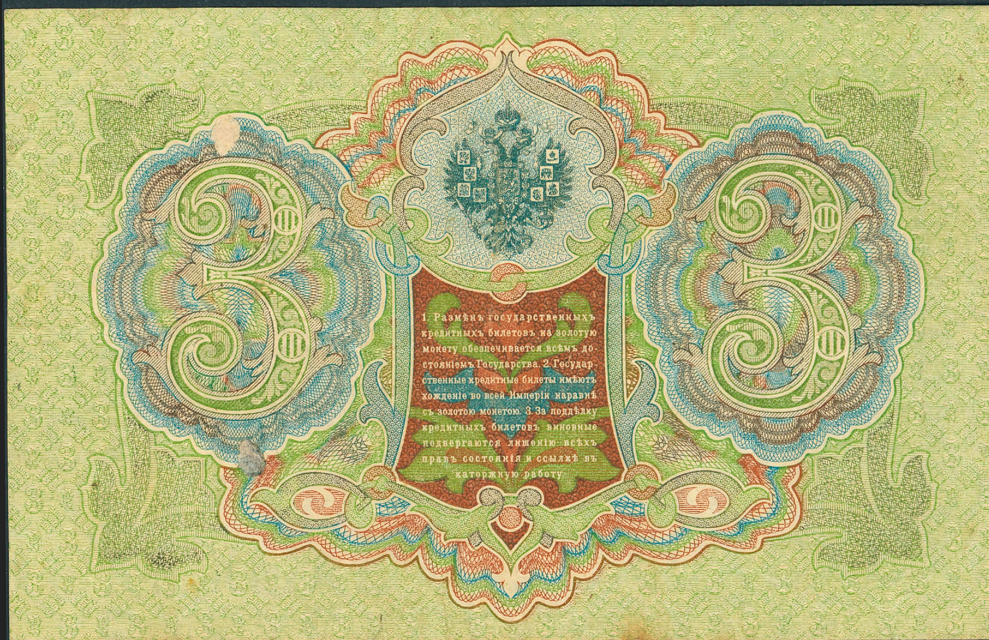 3 3
1. Размѣнъ государственныхъ
кредитныхъ билетовъ на золотую
монету обезпечивается всѣмъ до
стояніемъ Государства. 2. Государ
ственные кредитные билеты имѣютъ
хожденіе во всей Имперіи наравнѣ
съ золотою монетою. 3. За поддѣлку
кредитныхъ билетовъ виновные
подвергаются лишенію всѣхъ
правъ состоянія и ссылкѣ въ
каторжную работу.